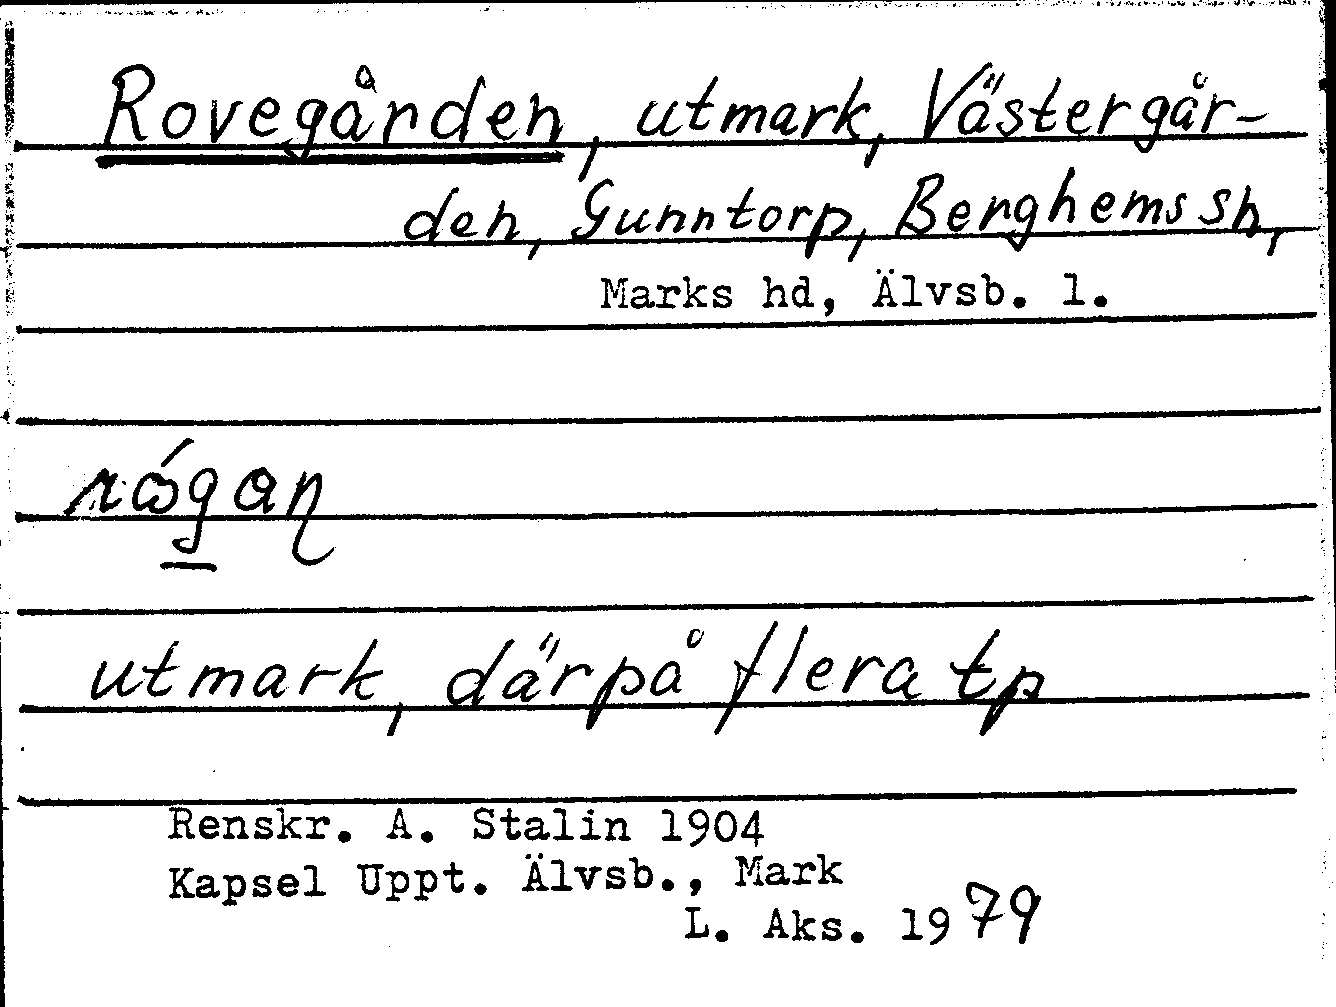 Rovegården, utmark, Västergår-
den, Gunntorp, Berghems sn,
Marks hd, Älvsb. l.
utmark, därpå flera tp
Renskr. A. Stalin 1904
Kapsel Uppt. Älvsb., Mark
L. Aks. 1979